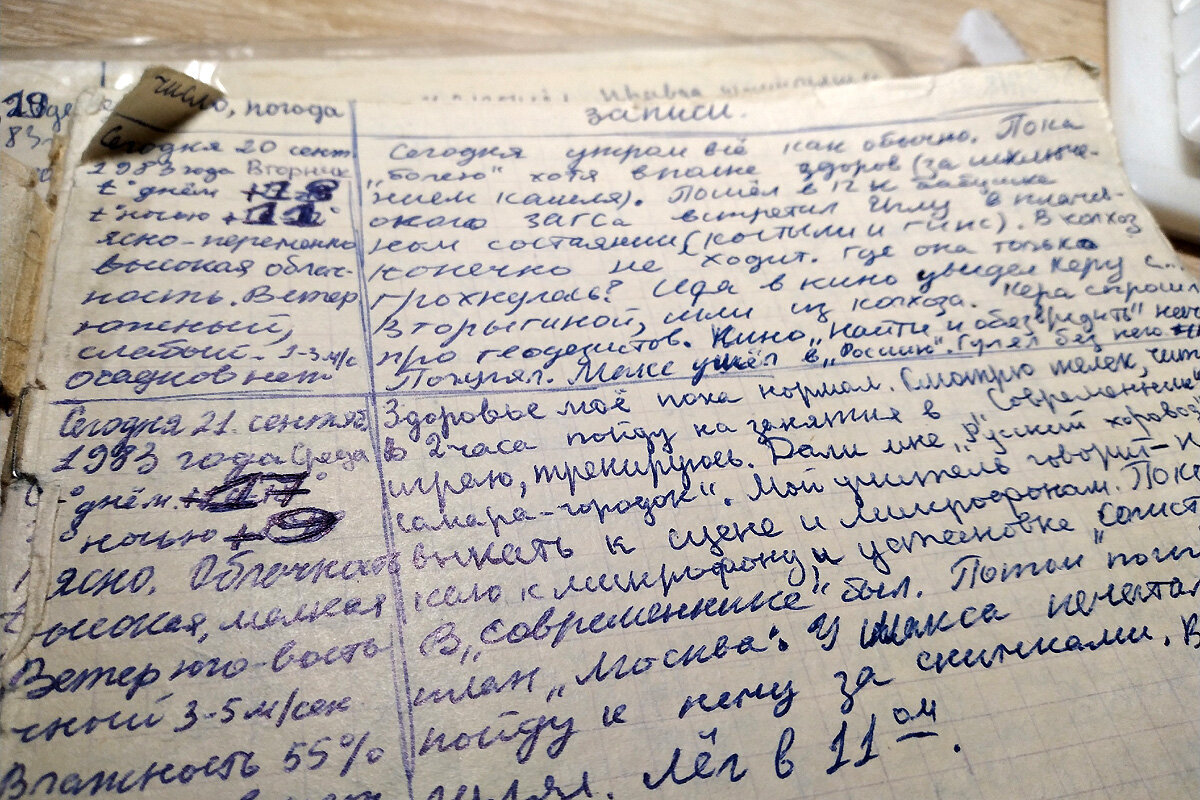 число, погода
записи.
Сегодня 20 сент.
1983 года Вторник
t° днём +18°
t° ночью +11°
ясно-переменно
высокая облач-
ность. Ветер
южный,
слабый - 1-3 м/с
осадков нет
Сегодня утром всё как обычно. Пока
"болею" хотя вполне здоров (за исключе-
нием кашля). Пошёл в 12 к бабушке
около ЗАГСа встретил в плачев-
ном состоянии (костыли и гипс). В колхоз
конечно не ходит. Где она только
грохнулась? Идя в кино увидел Керу с
Вторыгиной, шли из колхоза. Кера спросил
про геодезистов. Кино "Найти и обезвредить"
Погулял. Макс ушёл в "Россию". Гулял без него
Сегодня 21 сентяб
1983 года Среда
t° днём +17°
t° ночью +9
ясно. Облачность
высокая, мелкая
Ветер юго-восто
чный 3-5 м/сек
Влажность 55%
Здоровье моё пока нормал. Смотрю телек, чит
в 2 часа пойду на занятия в "Современник"
играю, тренируюсь. Дали мне "Русский хоровод
самара-городок". Мой учитель говорит -
выкать к сцене и микрофонам. Пока
каю к микрофону и установке "солист
В "Современнике" был. Потом
план "Москва". У Макса печатал
пойду к нему за снимками. В
гулял. Лёг в 11 ом.